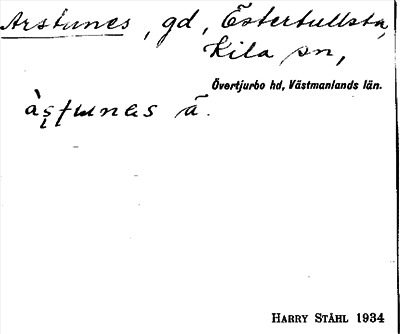 Arstunes, gd, Östertullsta,
Kila sn,
Övertjurbo hd, Västmanlands län.
àʂʈunes ā.
HARRY STÅHL 1934